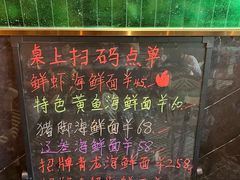 桌上扫码点单
鲜虾海鲜面￥45
特色黄鱼海鲜面￥60
猪脚海鲜面￥68
辽参海鲜面￥58
招牌青龙海鲜面￥258